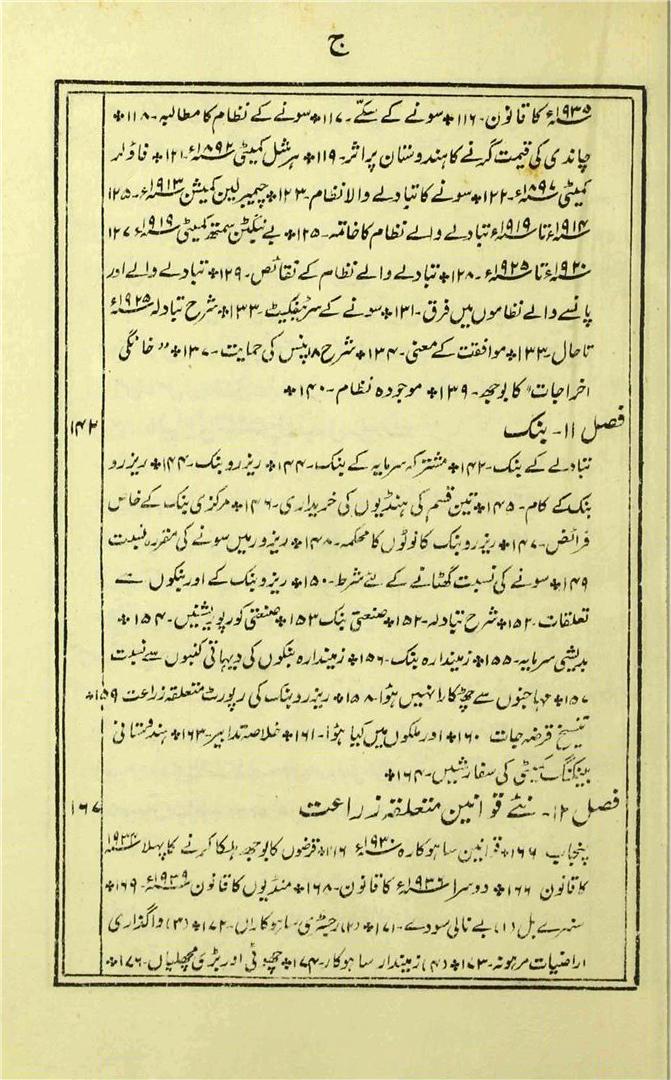 ج
۱۹۳۵ء کا قانون۔ ۱۱۶ ✤ سونے کے سکّے۔ ۱۱۷ ✤ سونے کے نظام کا مطالبہ۔ ۱۱۸ ✤
چاندی کی قیمت گرنے کا ہندوستان پر اثر۔ ۱۱۹ ✤ ہرشل کمیٹی ۱۸۹۲ء۔ ۱۲۱ ✤ فاؤلر
کمیٹی ۱۸۹۷ء۔ ۱۲۲ ✤ سونے کا تبادلے والا نظام۔ ۱۲۳ ✤ چیمبرلین کمیشن ۱۹۱۳ء۔ ۱۲۵
۱۹۱۴ء تا ۱۹۱۹ء تبادلے والے نظام کا خاتمہ۔ ۱۲۵ ✤ بےبنگٹن سمتھ کمیٹی ۱۹۱۹ء ۱۲۷
۱۹۲۰ء تا ۱۹۲۵ء۔ ۱۲۸ ✤ تبادلے والے نظام کے نقائص۔ ۱۲۹ ✤ تبادلے والے اور
پانسے والے نظاموں میں فرق۔ ۱۳۱ ✤ سونے کے سرٹیفکیٹ۔ ۱۳۳ ✤ شرح تبادلہ ۱۹۲۵ء
تاحال۔ ۱۳۳ ✤ موافقت کے معنی۔ ۱۳۴ ✤ شرح ۱۸ پنس کی حمایت۔ ۱۳۷ ✤ "خانگی
اخراجات" کا بوجھ۔ ۱۳۹ ✤ موجودہ نظام۔ ۱۴۰ ✤
فصل ۱۱۔ بنک ۱۴۲
تبادلے کے بنک۔ ۱۴۲ ✤ مشترکہ سرمایہ کے بنک۔ ۱۴۴ ✤ ریزرو بنک۔ ۱۴۴ ✤ ریزرو
بنک کے کام۔ ۱۴۵ ✤ تین قسم کی ہنڈیوں کی خریداری۔ ۱۴۶ ✤ مرکزی بنک کے خاص
فرائض۔ ۱۴۷ ✤ ریزرو بنک کا نوٹوں کا محکمہ۔ ۱۴۸ ✤ ریزرو میں سونے کی مقررہ نسبت
۱۴۹ ✤ سونے کی نسبت گھٹانے کے لئے شرط۔ ۱۵۰ ✤ ریزرو بنک کے اور بنکوں سے
تعلقات۔ ۱۵۲ ✤ شرح تبادلہ۔ ۱۵۲ ✤ صنعتی بنک ۱۵۳ ✤ صنعتی کورپوریشنیں۔ ۱۵۴ ✤
بدیشی سرمایہ۔ ۱۵۵ ✤ زمیندارہ بنک۔ ۱۵۶ ✤ زمیندارہ بنکوں کی دیہاتی کنبوں سے نسبت
۱۵۷ ✤ مہاجنوں سے چھٹکارا نہیں ہؤا۔ ۱۵۸ ✤ ریزرو بنک کی رپورٹ متعلقہ زراعت ۱۵۹ ✤
تنسیخ قرضہ جات ۱۶۰ ✤ اور ملکوں میں کیا ہؤا۔ ۱۶۱ ✤ خلاصہ تدابیر۔ ۱۶۳ ✤ ہندوستانی
بینکنگ کمیٹی کی سفارشیں۔ ۱۶۴ ✤
فصل ۱۲۔ نئے قوانین متعلقہ زراعت ۱۶۷
پنجاب ۱۶۶ ✤ قوانین ساہوکارہ ۱۹۳۰ء ۱۶۶ ✤ قرضوں کا بوجھ ہلکا کرنے کا پہلا ۱۹۳۴ء
کا قانون ۱۶۶ ✤ دوسرا ۱۹۳۶ء کا قانون۔ ۱۶۸ ✤ منڈیوں کا قانون ۱۹۳۹ء۔ ۱۶۹ ✤
سنہرے بل (۱) بے نامی سودے۔ ۱۷۱ ✤ (۲) رجسٹری ساہوکاراں۔ ۱۷۲ ✤ (۳) واگذاری
اراضیات مرہونہ۔ ۱۷۳ ✤ (۴) زمیندار ساہوکار۔ ۱۷۴ ✤ چھوٹی اور بڑی مچھلیاں۔ ۱۷۶ ✤